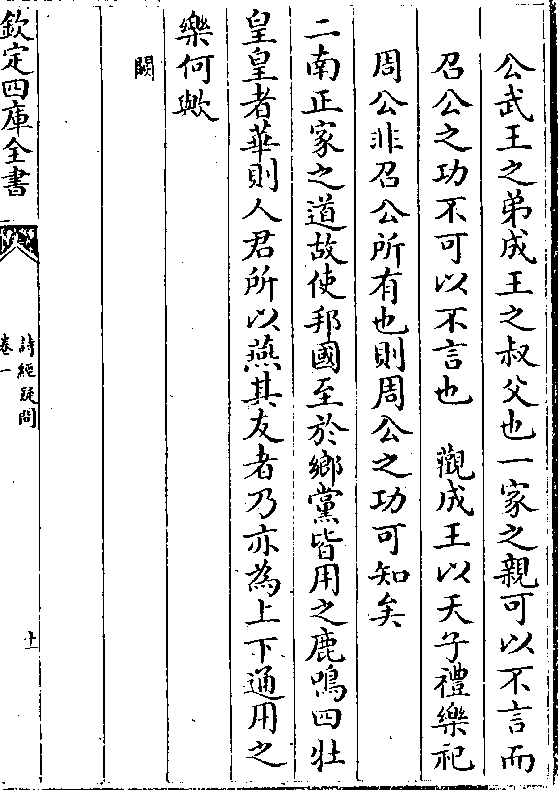 公武王之弟成王之叔父也一家之親可以不言而
召公之功不可以不言也　觀成王以天子禮樂祀
周公非召公所有也則周公之功可知矣
二南正家之道故使邦國至於鄉黨皆用之鹿鳴四牡
皇皇者華則人君所以燕其友者乃亦為上下通用之
樂何歟
闕
欽定四庫全書
詩經疑問
卷一
十一